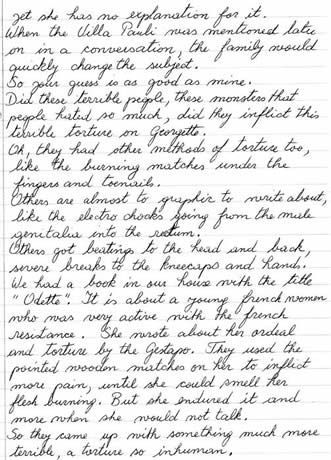 yet she has no explanation for it.
When the Villa Pauli was mentioned late
on in a conversation, the family would
quickly change the subject.
So your guess is as good as mine.
Did these terrible people, these monsters that
people hated so much, did they inflict this
terrible torture on Georgette.
Oh, they had other methods of torture too,
like the burning matches under the
fingers and toenails.
Others are almost to graphic to write about,
like the electro chocks going from the male
genitalia into the rectum.
Others got beatings to the head and back,
severe breaks to the kneecaps and hand.
We had a book in our house with the title
"Odette". It is about a young french women
who was very active with the french
resistance. She wrote about her ordeal
and torture by the Gestapo. They used the
pointed wooden matches on her to inflict
more pain, until she could smell her
flesh burning. But she endured it and
more when she would not talk.
So they came up with something much more
terrible, a torture so inhuman.